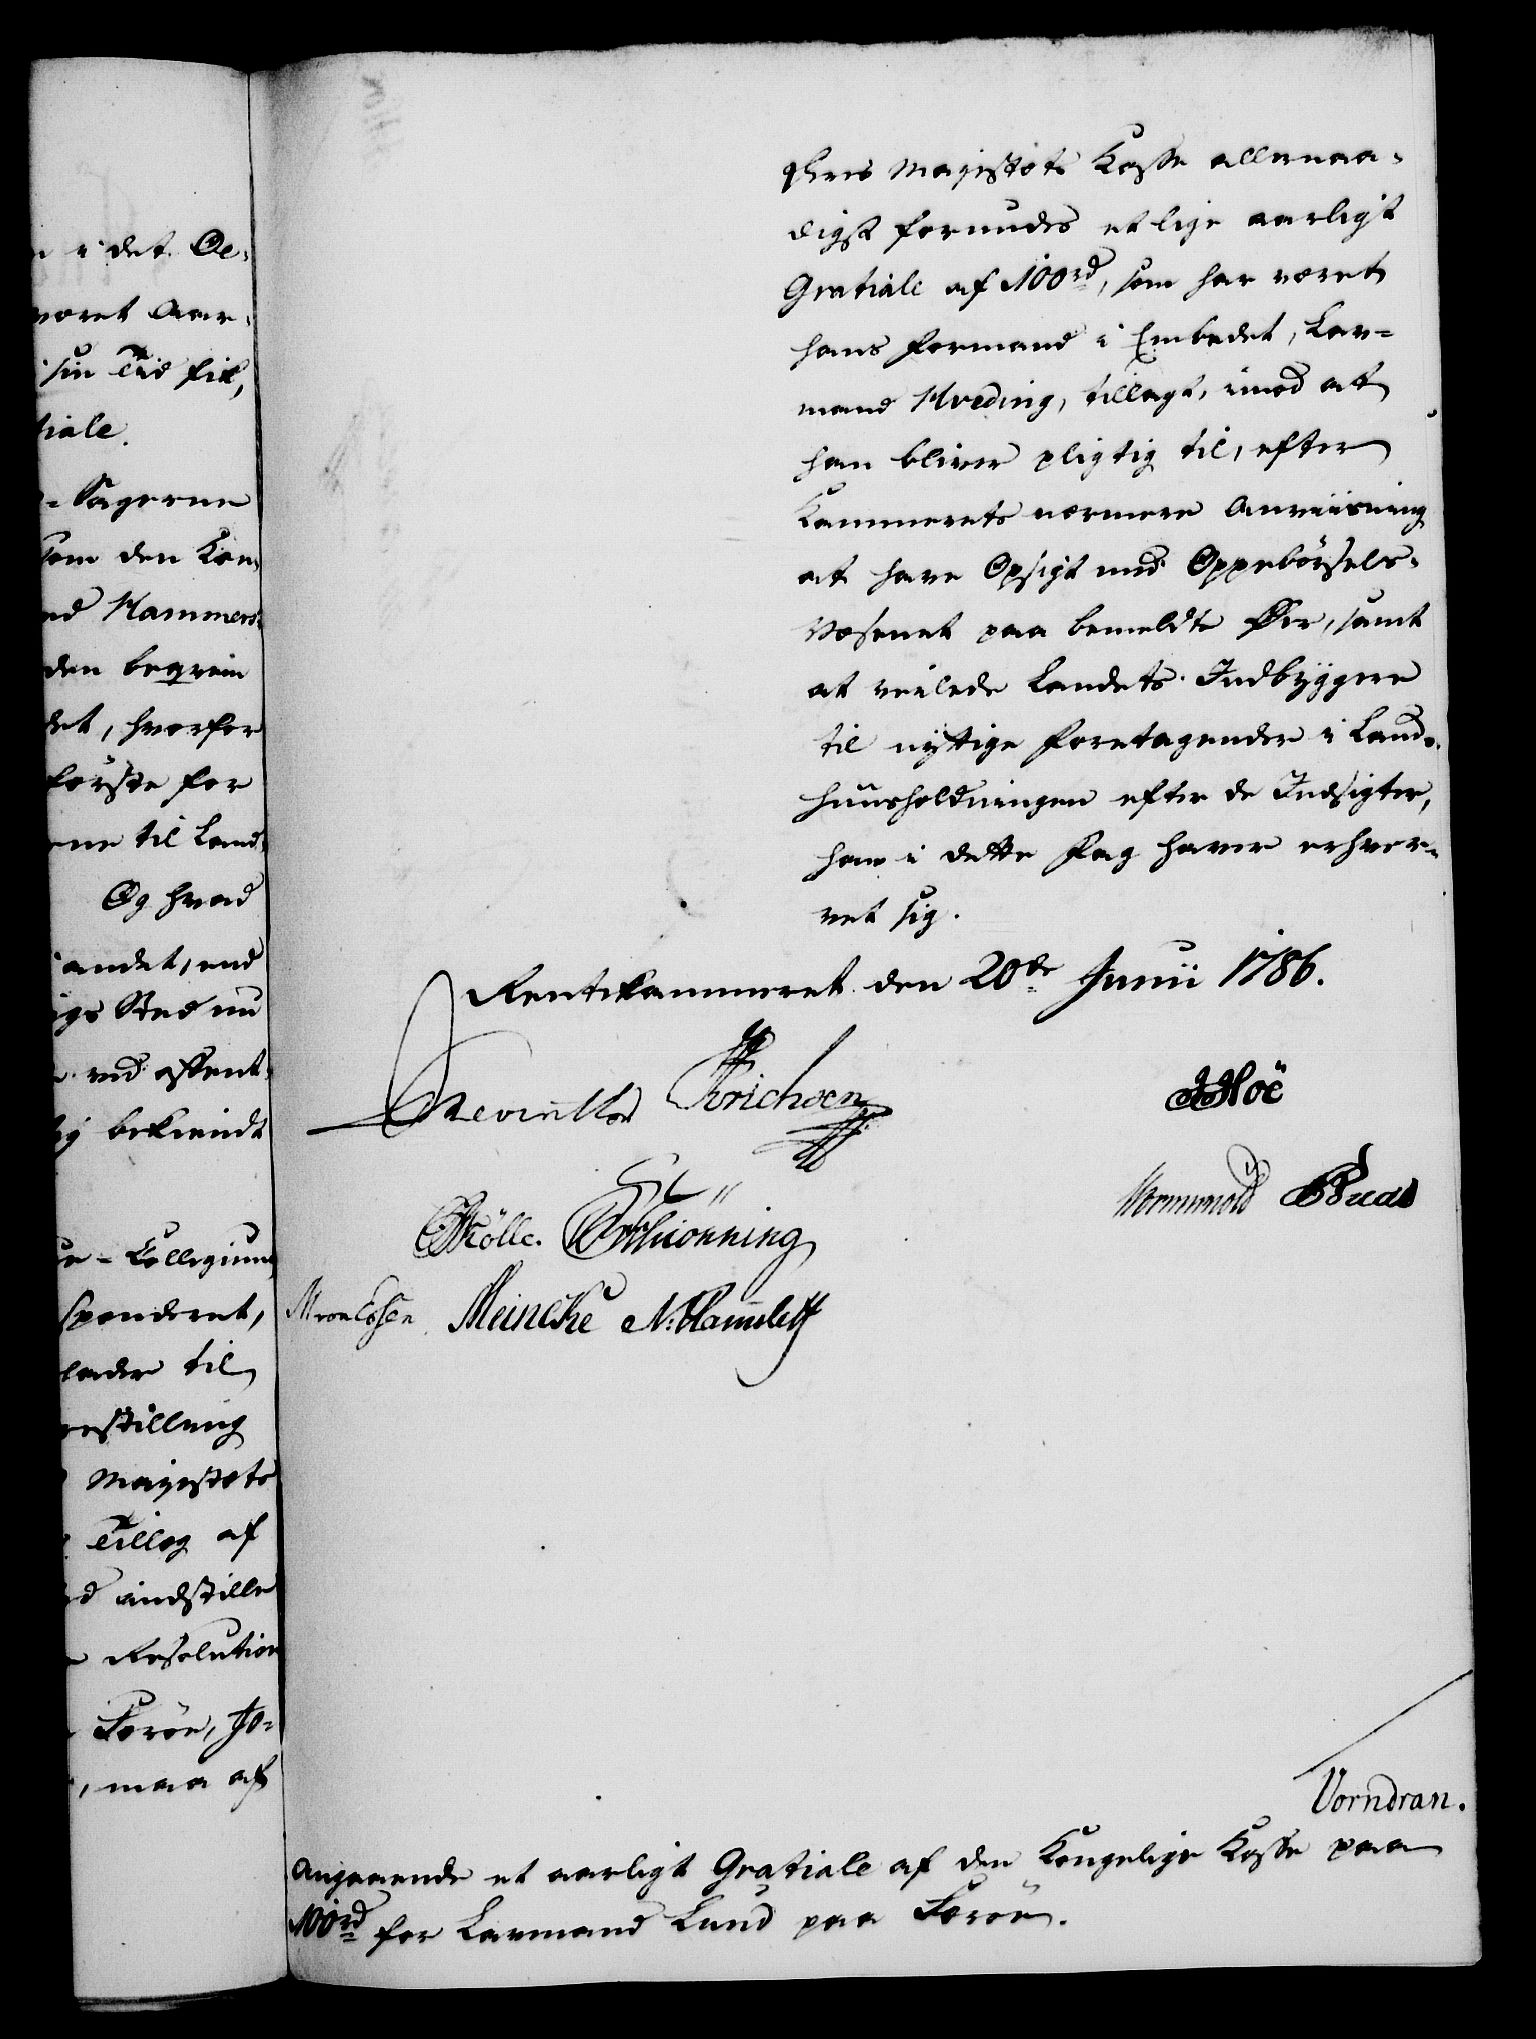 n i det Oe-
været Aar-
i sin Tid fik,
tiale.
- Sagerne
som den Kon-
ed Hammers-
den begrein
det, hvorfor
første for
ene til Land-
Og hvad
andet, end
igs Sted nu
ved offent-
ig bekiendt
ue-Collegium
sponderet,
lader til
restilling
Majestæts
Tillæg af
ed indstille
Resolution
Færöe, Jo-
, maa af
Deres Majestæts Kasse allernaa-
digst forundes et lige aarligt
Gratiale af 100 rd, som har været
hans Formand i Embedet, Lav-
mand Hveding, tillagt, imod at
han bliver pligtig til, efter
Kammerets nærmere Anviisning
at have Opsigt med Oppebörsels-
Væsenet paa bemeldte Øer, samt
at veilede Landets Indbyggere
til nyttige Foretagender i Land-
huusholdningen efter de Indsigter,
han i dette Fag haver erhver-
vet sig.
Rentekammeret den 20de Junii 1786.
Reventlow Erichsen
JHoë
Wormskiold
Müller. Schiönning
M von Essen Meincke N: Hammeleff
Vorndran.
Angaaende et aarligt Gratiale af den Kongelige Kasse paa
100 rd for Lavmand Lund paa Færöe.